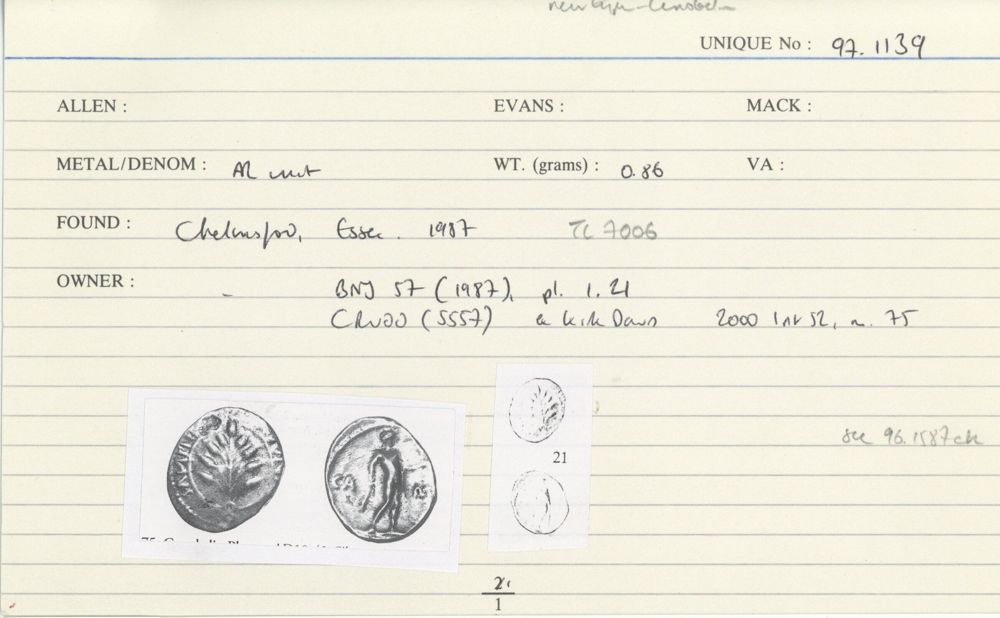 UNIQUE No : 97.1139
ALLEN : EVANS : MACK :
METAL/DENOM : AR unit WT. (grams) : 0.86 VA :
FOUND : Chelmsford, Essex. 1987 TC 7006
OWNER : - BNJ 57 (1987), pl. 1.21
CR000 (5557) ex Kirk Davis 2000 list 52, n. 75
21
see 96.1587 ck
21
1